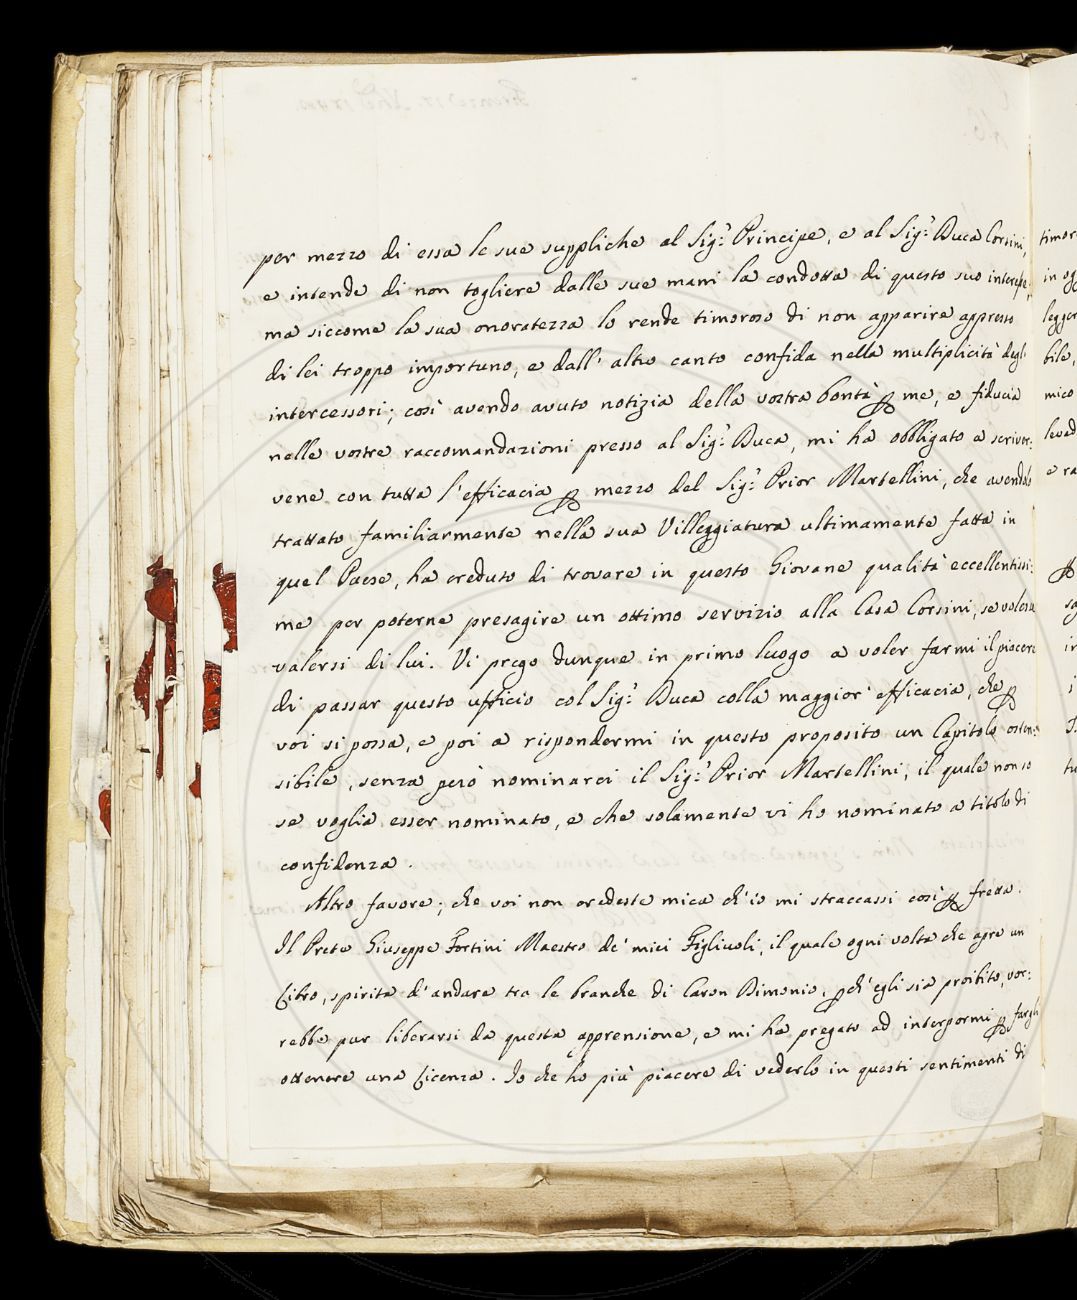 per mezzo di essa le sue suppliche al Sig.r Principe, e al Sig.r Duca Corsini,
e intende di non togliere dalle sue mani la condotta di questo suo interesse,
ma siccome la sua onoratezza lo rende timoroso di non apparire appresso
di lei troppo importuno, e dall' altro canto confida nella multiplicità degli
intercessori; così avendo avuto notizia della vostra bontà p me, e fiducia
nelle vostre raccomandazioni presso al Sig.r Duca, mi ha obbligato a scriver:
vene con tutta l'efficacia p mezzo del Sig.r Prior Martellini, che avendolo
trattato familiarmente nella sua Villeggiatura ultimamente fatta in
quel Paese, ha creduto di trovare in questo Giovane qualità eccellentissi:
me per poterne presagire un ottimo servizio alla Casa Corsini, se volesse
valersi di lui. Vi prego dunque in primo luogo a voler farmi il piacere
di passar questo ufficio col Sig.r Duca colla maggior' efficacia, che p
voi si possa, e poi a rispondermi in questo proposito un Capitolo osten:
sibile, senza però nominarci il Sig.r Prior Martellini, il quale non so
se voglia esser nominato, e che solamente vi ho nominato a titolo di
confidenza.
Altro favore; che voi non credeste mica ch'io mi straccassi così p fretta.
Il Prete Giuseppe Fortini Maestro de' miei Figliuoli, il quale ogni volta che apre un
Libro, spirita d'andare tra le branche di Caron Dimonio, pch'egli sia proibito, vor:
rebbe pur liberarsi da questa apprensione, e mi ha pregato ad interpormi p fargli
ottenere una Licenza. Io che ho più piacere di vederlo in questi sentimenti di
timor
leggor
bile,
mico
e ra